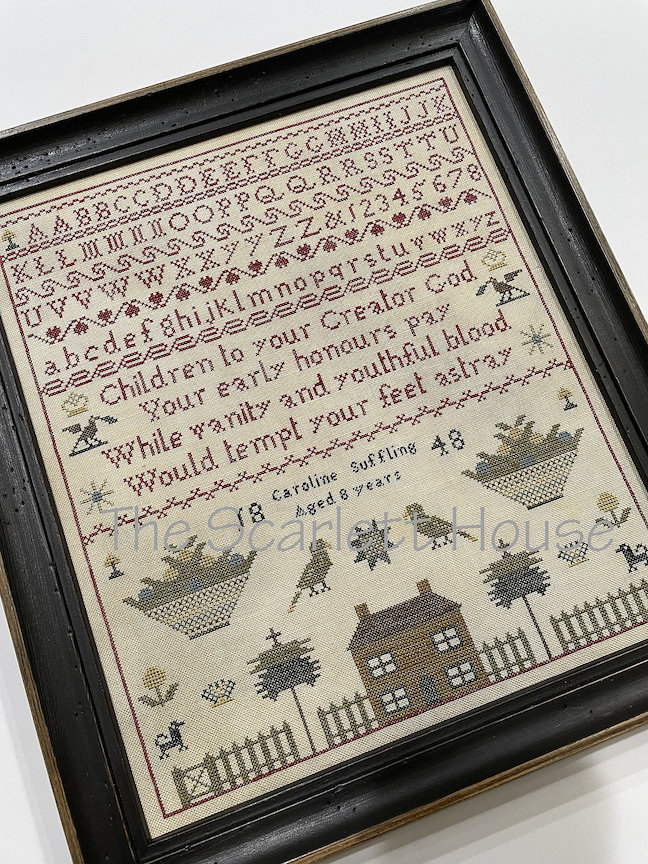 AABBCCDDEEFFGGHHIIJK
KLLMMNNOOPPQQRRSSTTU
UVVWWXXYYZZ&12345678
abcdefghijklmnopqrstuvwxyz
Children to your Creator God
Your early honours pay
While vanity and youthful blood
Would tempt your feet astray
18 Caroline Suffling 48
Aged 8 years
The Scarlett House